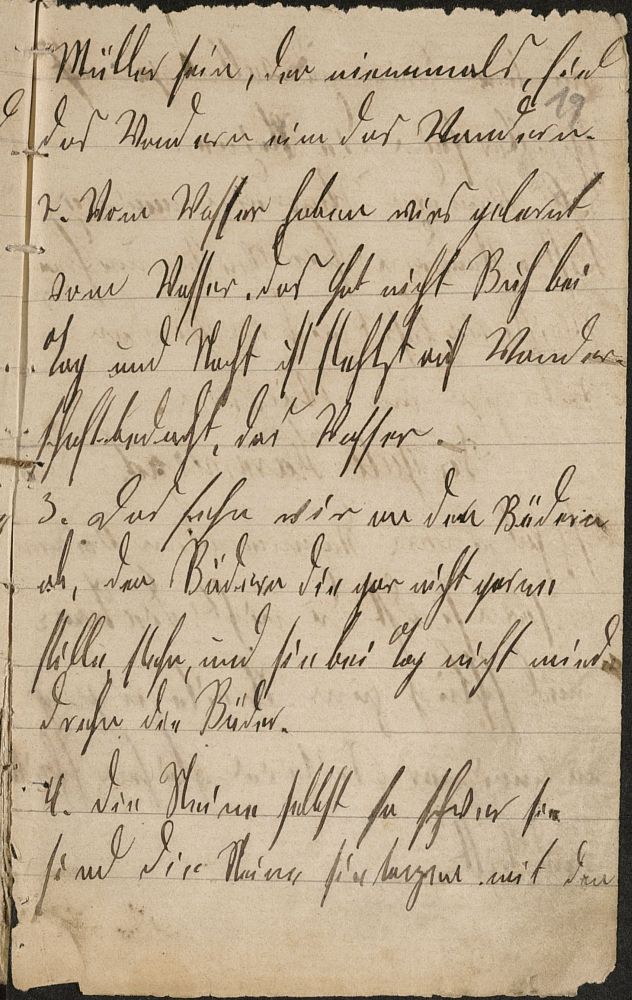 Müller sein, dem niemmals fiel
19
das Wandern ein das Wandern.
2. Vom Wasser haben wirs gelernt
vom Wasser, das hat nicht Ruh bei
Tag und Nacht ist stehtst auf Wander-
schaft bedacht, das Wasser.
3. Das sehn wir an den Rädern
ab, den Rädern die gar nicht gerne
stille stehn, und sie bei Tag nicht müd
drehn die Räder.
4. die Steine selbst so schwer sie
sind die Steine sie tanzen mit den